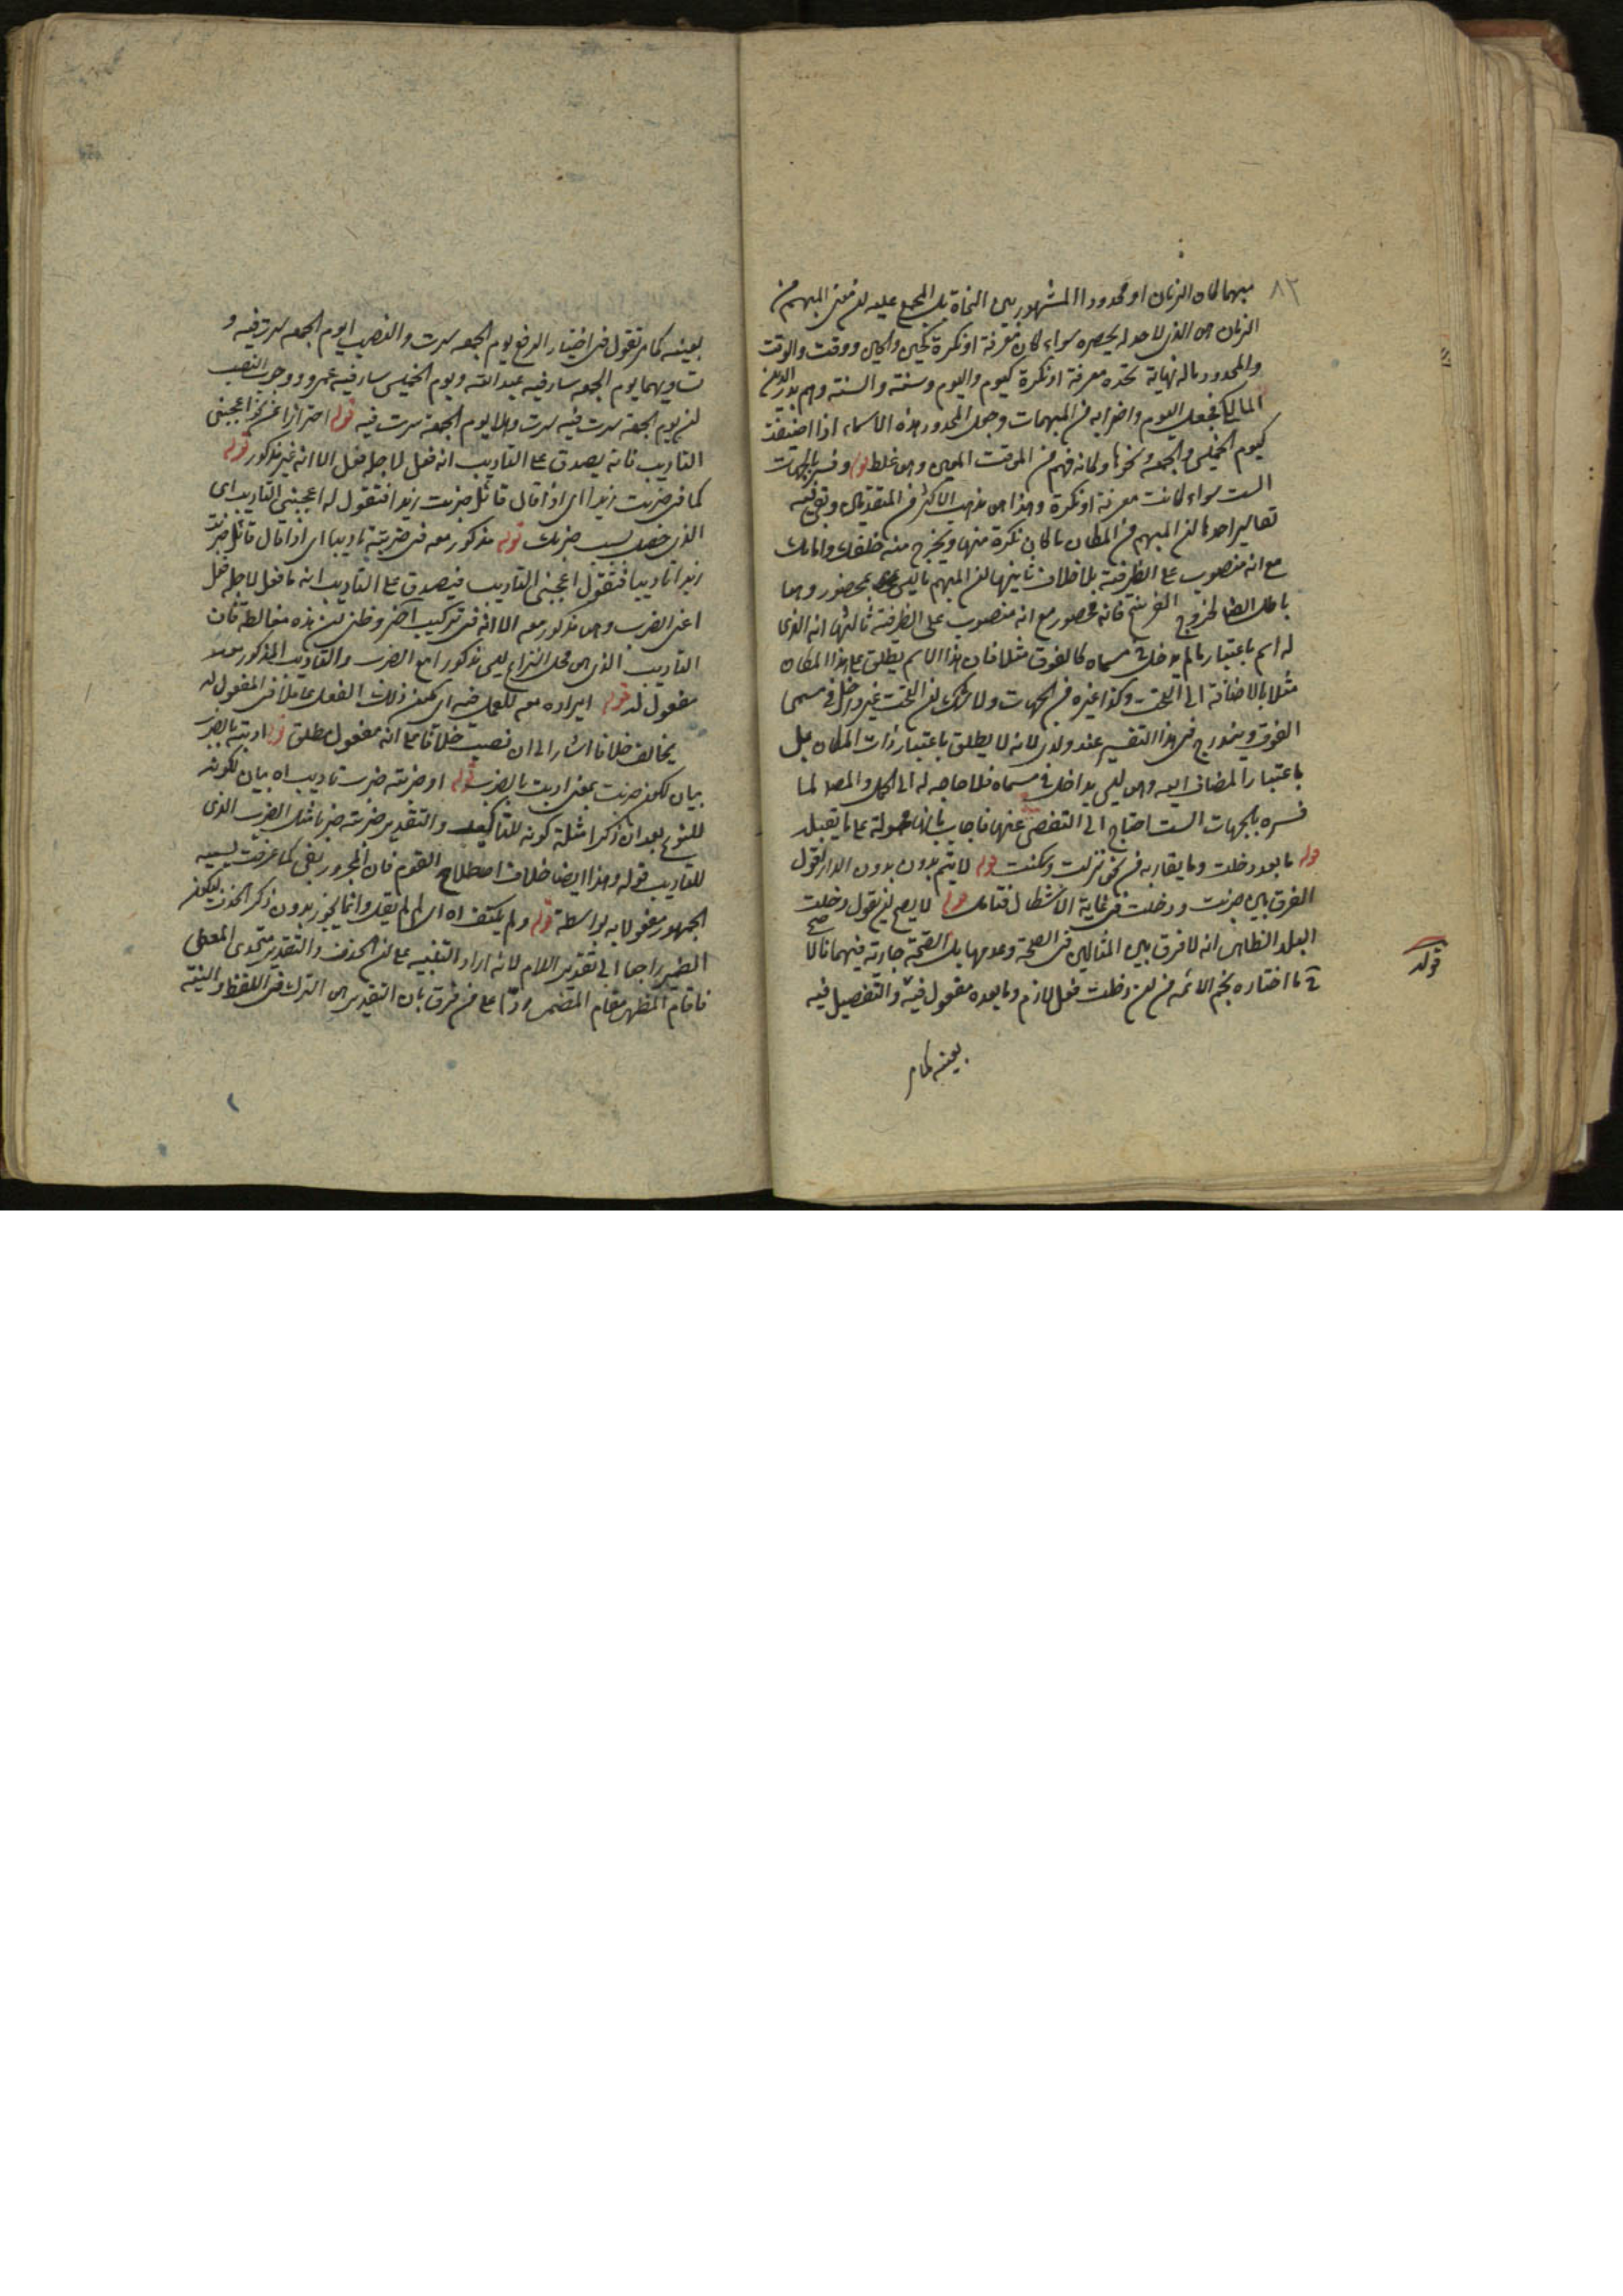 ٨٣
مبهما كان الزمان او محدودا المشهور بين النحاة بل المجمع عليه لان معنى المبهم من
الزمان هو الذى لا حد له يحصره سواء كان معرفة او نكرة كحين والحين ووقت والوقت
والمحدود ماله نهاية تحده معرفة او نكرة كيوم واليوم وسنة والسنة وهم بدر الدين
المالكى فجعل اليوم واضرابه من المبهمات وجعل المحدود هذه الاسماء اذا اضيفت
كيوم الخميس والجمعة ونحوها وكانه فهم من الموقت المعين وهو غلط قوله وفسر بالجهات
الست سواء كانت معرفة او نكرة وهذا هو مذهب الاكثر من المتقدمين وبقى فيه
تفاسير احدها ان المبهم من المكان ما كان نكرة منها ويخرج منه خلفك وامامك
مع انه منصوب على الظرفية بلا خلاف ثانيها ان المبهم ما ليس بمحصور وهو
باطل ايضا لخروج الفرسخ فانه محصور مع انه منصوب على الظرفية ثالثها انه الذى
له اسم باعتبار ما لم يدخل فى مسماه كالفوق مثلا فان هذا الاسم يطلق على هذا المكان
مثلا بالاضافة الى التحت وكذا غيره من الجهات ولا شك ان التحت غير داخل فى مسمى
الفوق ويندرج فى هذا التفسير عند ولدى لانه لا يطلق باعتبار ذات المكان بل
باعتبار المضاف اليه وهو ليس بداخل فى مسماه فلا حاجه له الى الحمل والمص لما
فسره بالجهات الست احتاج الى التفصى عنها فاجاب بانها محمولة على ما تقبله
قوله ما بعد دخلت وما يقاربه من نحو نزلت وسكنت قوله لا يتم بدون بدون الدار نقول
الفرق بين ضربت ودخلت فى غاية الاشكال فتامل قوله لا يصح ان تقول دخلت
البلد الظاهر انه لا فرق بين المثالين فى الصحة وعدمها بل الصحة جارية فيهما فالا
صح
ما اختاره نجم الائمه من ان دخلت فعل لازم وما بعده مفعول فيه والتفصيل فيه
بعينه كما مر
قوله
بعينه كما مر تقول فى اختيار الرفع يوم الجمعه سرت والنصب ايوم الجمعه سرت فيه و
تساويهما يوم الجمعه سار فيه عبد الله ويوم الخميس سار فيه عمرو ووجوب النصب
ان يوم الجمعة سرت فيه سرت وهلا يوم الجمعة سرت فيه قوله احترازا عن نحو اعجبنى
التاديب فانه يصدق على التاديب انه فعل لاجله فعل الا انه غير مذكور قوله
كما فى ضربت زيدا اى اذا قال قائل ضربت زيدا فتقول له اعجبنى التاديب اى
الذى حصل بسبب ضربك قوله مذكور معه فى ضربته تاديبا اى اذا قال قائل ضربت
زيدا تاديبا فتقول اعجبنى التاديب فيصدق على التاديب انه ما فعل لاجله فعل
اعنى الضرب وهو مذكور معه الا انه فى تركيب اخر وظنى ان هذه مغالطة فان
التاديب الذى هو محل النزاع ليس مذكورا مع الضرب والتاديب المذكور معه
مفعول له قوله ايراده معه للعمل فيه اى كون ذلك الفعل عاملا فى المفعول له
يخالف خلافا اشار الى ان نصب خلافا على انه مفعول مطلق قوله ادبته بالضرب
بيان لكون ضربت بمعنى ادبت بالضرب قوله او ضربته ضرب تاديب اه بيان لكونه
للنوع بعد ان ذكر امثلة كونه للتاكيد والتقدير ضربته ضربا مثل الضرب الذى
للتاديب قوله وهذا ايضا خلاف اصطلاح القوم فان المجرور بفى كما عرفت يسميه
الجمهور مفعولا به بواسطة قوله ولم يكتف اه اى لم يقل وانما يجوز بدون ذكر الحذف ليكون
الضمير راجعا الى تقدير اللام لانه اراد التنبيه على ان الحذف والتقدير متحدى المعنى
فاقام المظهر مقام المضمر ردا على من فرق بان التقدير هو الترك فى اللفظ والنية